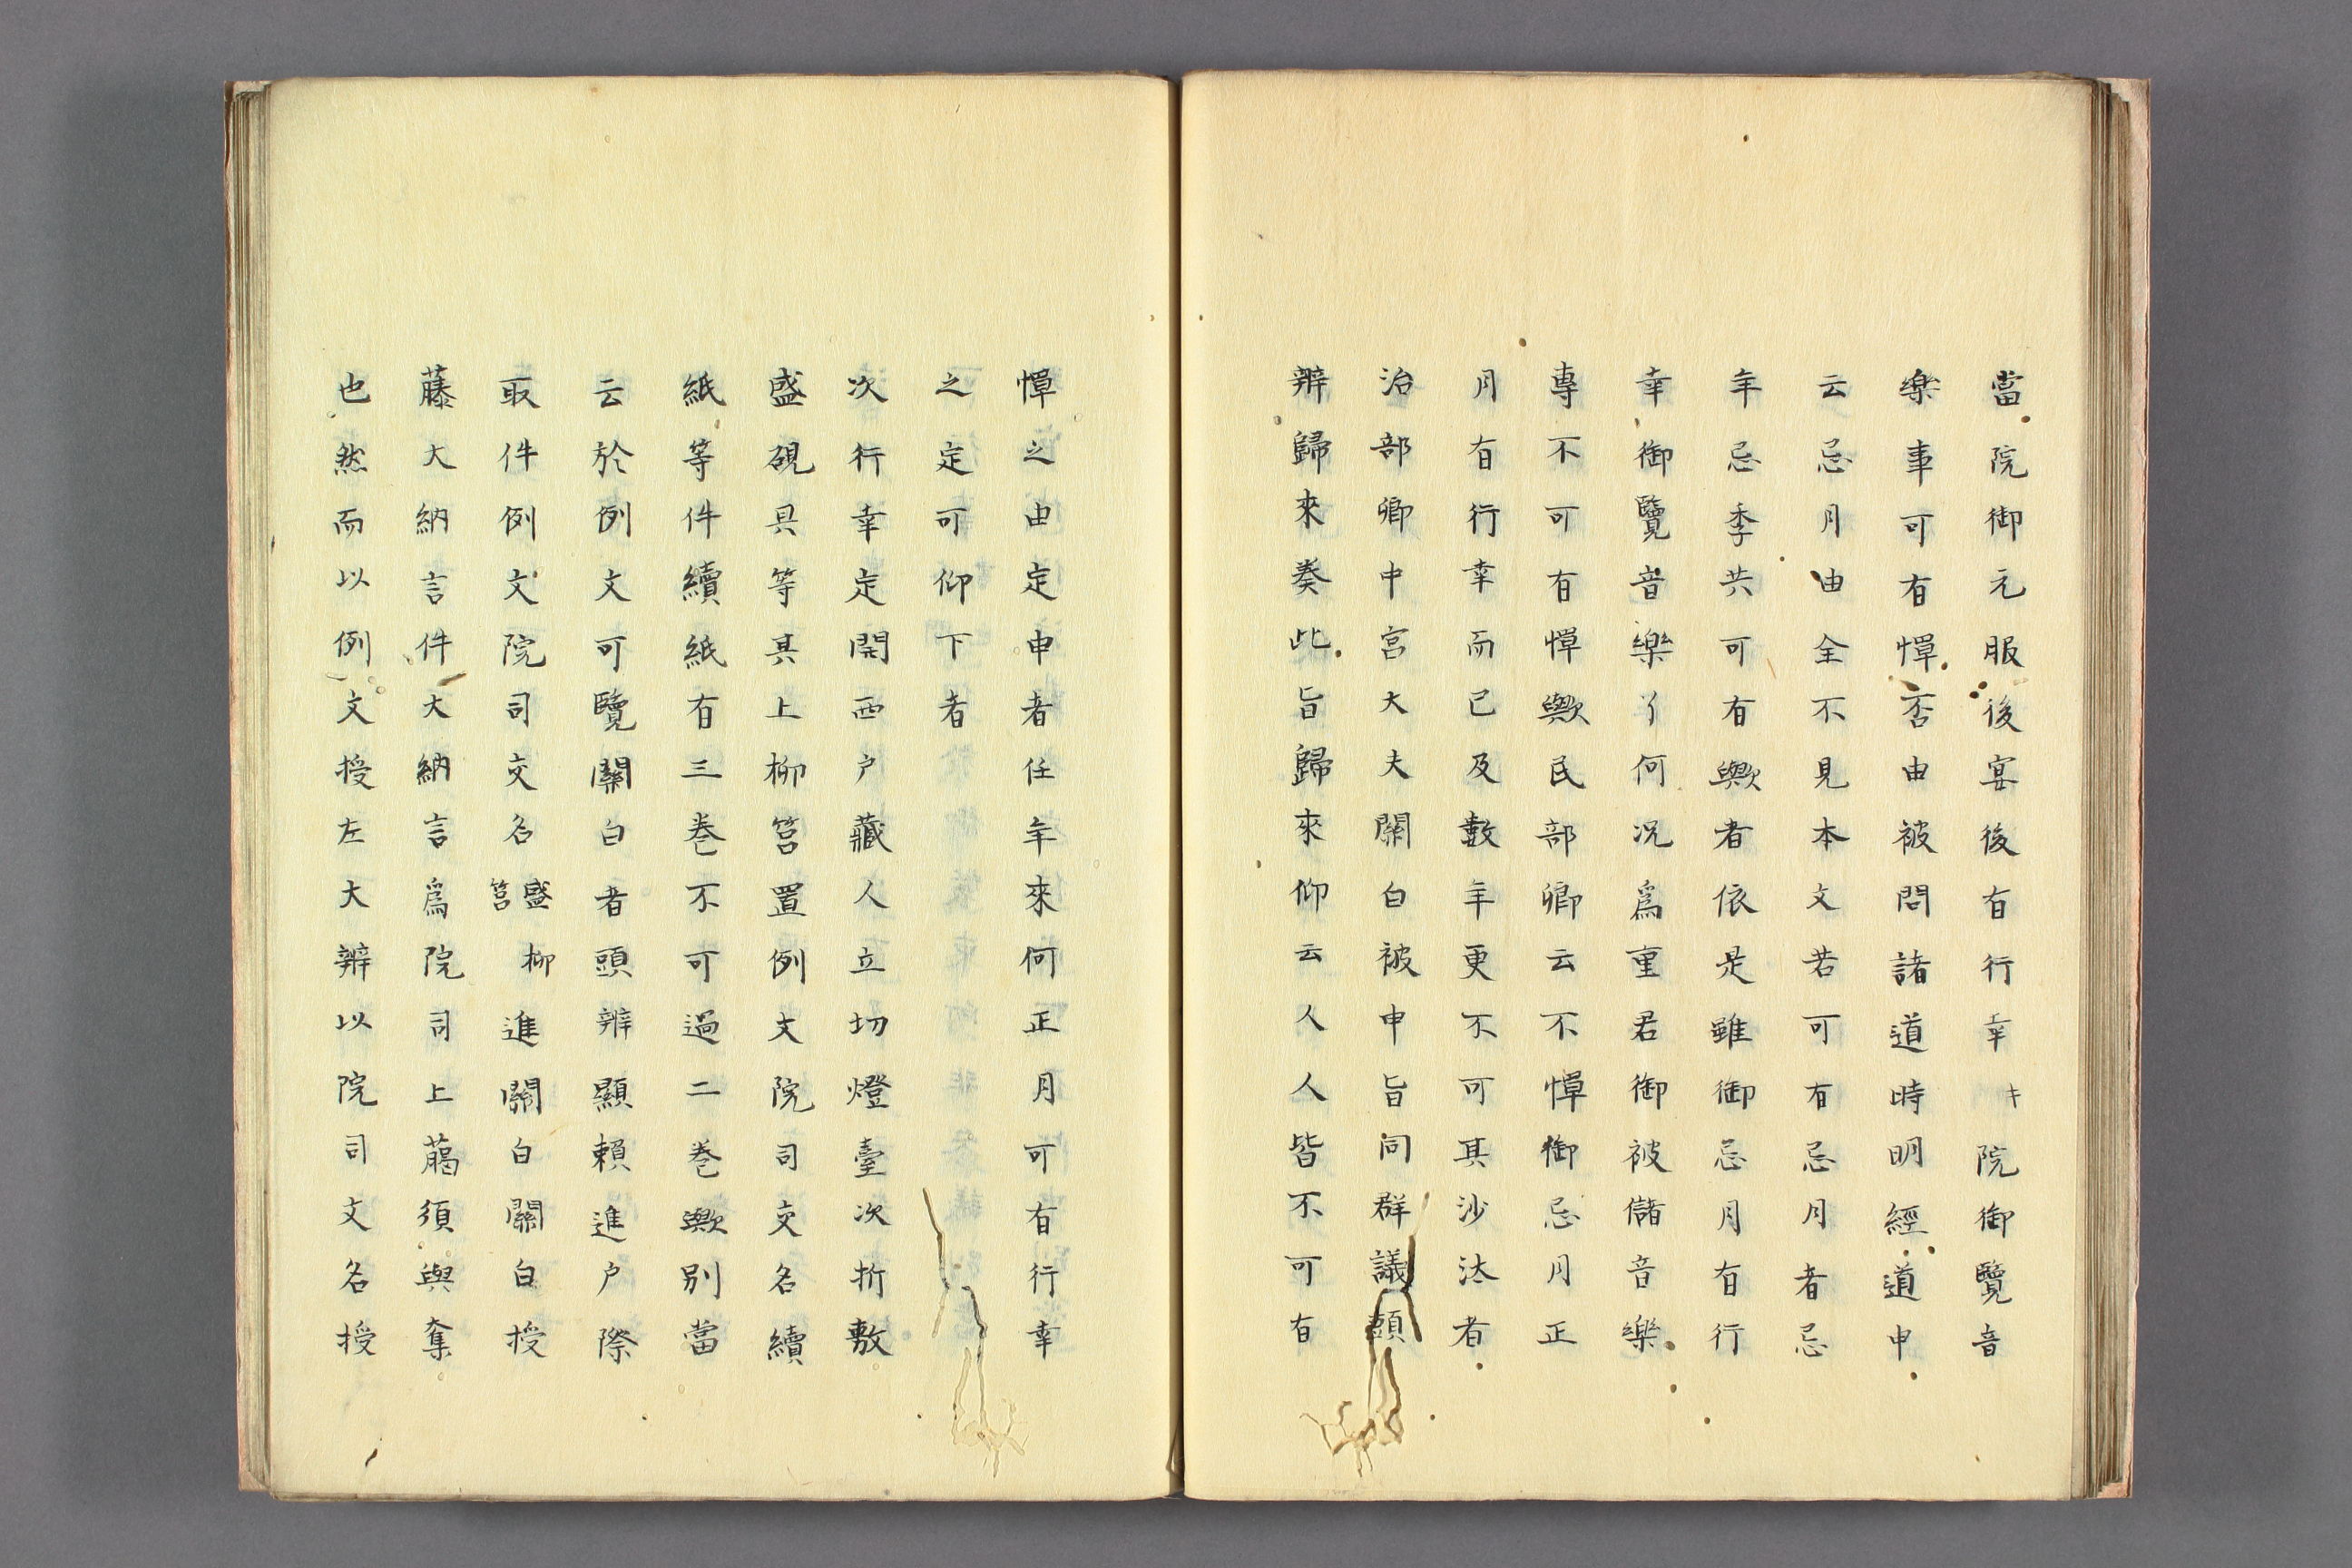 當院御元服後宴後有行幸キ院御覽音
樂事可有憚否由被問諸道時明經道申
云忌月由全不見本文若可有忌月者忌
年忌季共可有歟者依是雖御忌月有行
幸御覽音樂了何况爲重君御被儲音樂
專不可有憚歟民部卿云不憚御忌月正
月有行幸而已及數年更不可其沙汰者
治部卿中宮大夫關白被申旨同群議頭
辨歸來奏此旨歸來仰云人人皆不可有
憚之由定申者任年來何正月可有行幸
之定可仰下者
次行幸定開西户藏人立切燈臺次折敷
盛硯具等其上柳筥置例文院司交名續
紙等件續紙有三卷不可過二卷歟別當
云於例文可覽關白者頭辨顯賴進户際
取件例文院司交名盛柳筥進關白關白授
藤大納言件大納言爲院司上﨟須與奪
也然而以例文授左大辨以院司文名授